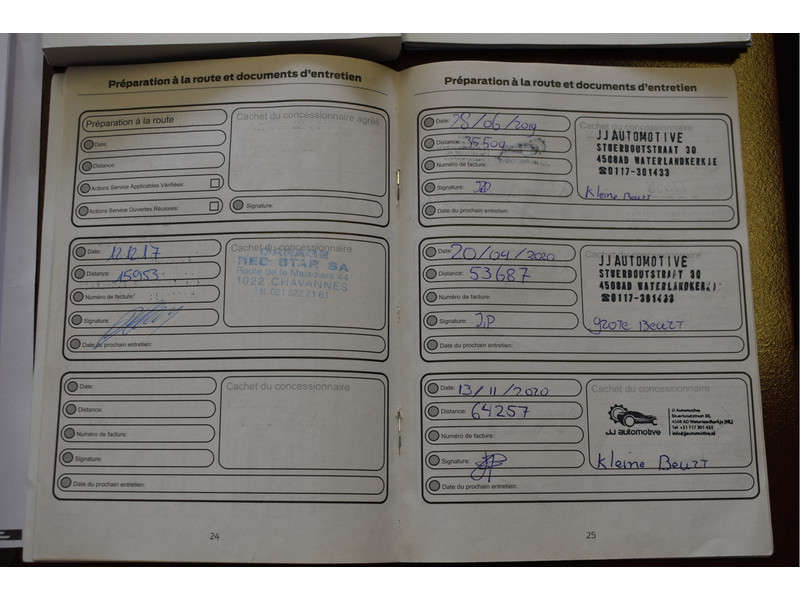 Préparation à la route et documents d'entretien
Préparation à la route
Cachet du concessionnaire agréé
Date:
Distance:
Actions Service Applicables Vérifiées:
Actions Service Ouvertes Réussies:
Signature:
Date: 12.12.17
Cachet du concessionnaire
GARAGE
RED STAR SA
Route de la Maladière 44
1022 CHAVANNES
Tél. 021 522 71 61
Distance: 15953
Numéro de facture:
Signature:
Date du prochain entretien:
Date:
Cachet du concessionnaire
Distance:
Numéro de facture:
Signature:
Date du prochain entretien:
24
Préparation à la route et documents d'entretien
Date: 28/06/2019
Cachet du concessionnaire agréé
JJ AUTOMOTIVE
STUERBOUTSTRAAT 30
4508AD WATERLANDKERKJE
☎0117-301433
Distance: 35509
Numéro de facture:
Signature: J.P
Kleine Beurt
Date du prochain entretien:
Date: 20/04/2020
JJ AUTOMOTIVE
STUERBOUTSTRAAT 30
4508AD WATERLANDKERKJE
☎0117-301433
Distance: 53687
Numéro de facture:
Signature: J.P
grote Beurt
Date du prochain entretien:
Date: 13/11/2020
Cachet du concessionnaire
Distance: 64257
JJ automotive
JJ Automotive
Stuerboutstraat 30,
4508 AD Waterlandkerkje (NL)
Tel +31 117 301 433
info@jjautomotive.nl
Numéro de facture:
Signature:
Kleine Beurt
Date du prochain entretien:
25